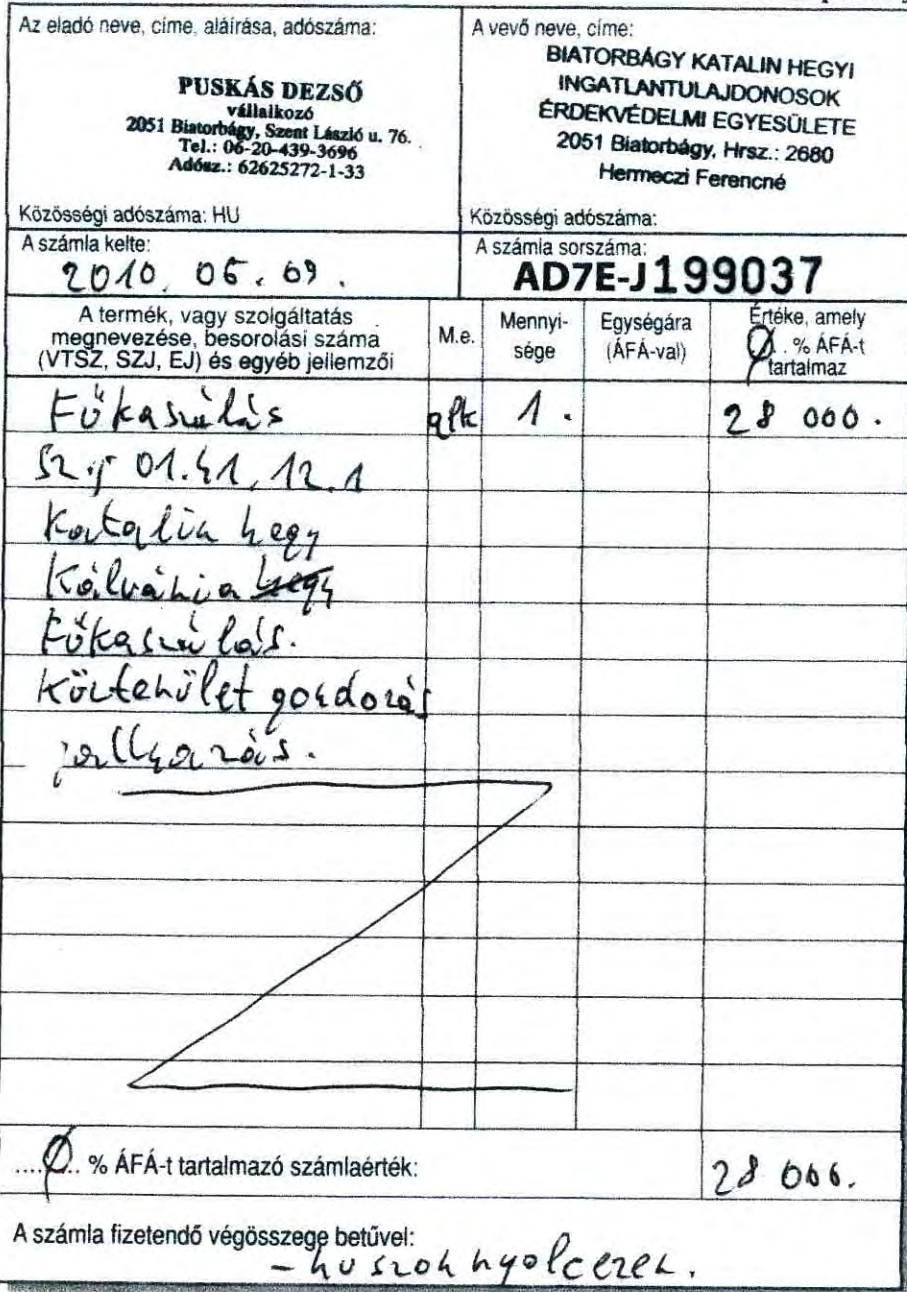 Az eladó neve, címe, aláírása, adószáma:
PUSKÁS DEZSŐ
vállalkozó
2051 Biatorbágy, Szent László u. 76.
Tel.: 06-20-439-3696
Adósz.: 62625272-1-33
Közösségi adószáma: HU
A vevő neve, címe:
BIATORBÁGY KATALIN HEGYI
INGATLANTULAJDONOSOK
ÉRDEKVÉDELMI EGYESÜLETE
2051 Biatorbágy, Hrsz.: 2680
Hermeczi Ferencné
Közösségi adószáma:
A számla kelte:
2010. 06. 09.
A számla sorszáma:
AD7E-J199037
A termék, vagy szolgáltatás
megnevezése, besorolási száma
(VTSZ, SZJ, EJ) és egyéb jellemzői
M.e.
Mennyi-
sége
Egységára
(ÁFÁ-val)
Értéke, amely
0.. % ÁFÁ-t
tartalmaz
Fűkaszálás 1. 28 000.
Szj 01.41.12.1
Katalin hegy
Kálvária hegy
Fűkaszálás.
Közterület gondozás
gallyazás.
....0.. % ÁFÁ-t tartalmazó számlaérték: 28 000.
A számla fizetendő végösszege betűvel:
- huszonnyolcezer.